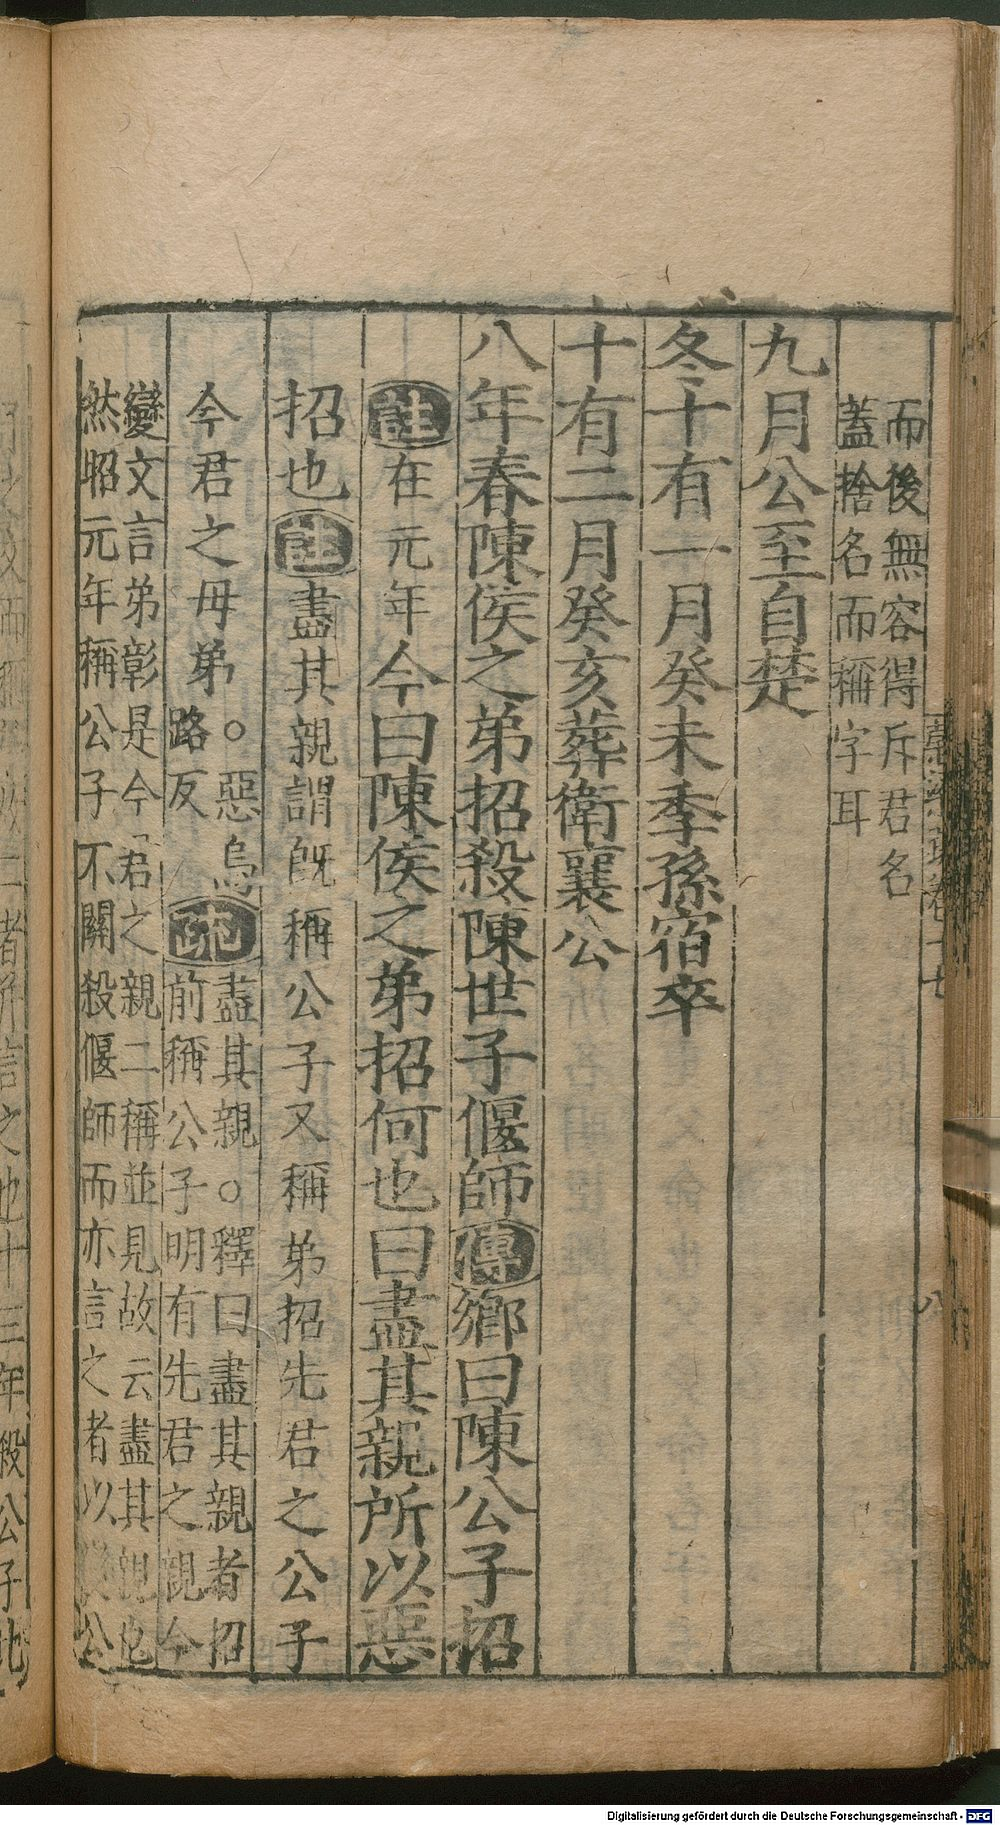 而後無容得斥君名
蓋捨名而稱字耳
九月公至自楚
冬十有一月癸未季孫宿卒
十有二月癸亥葬衛襄公
八年春陳侯之弟招殺陳世子偃師傳鄉曰陳公子招
註在元年今曰陳侯之弟招何也曰盡其親所以惡
招也註盡其親謂旣稱公子又稱弟招先君之公子
今君之母弟○惡烏路反疏盡其親○釋曰盡其親者招前稱公子明有先君之親今
變文言弟彰是今君之親二稱並見故云盡其親也
然昭元年稱公子不關殺偃師而亦言之者以變公
Digitalisierung gefördert durch die Deutsche Forschungsgemeinschaft - DFG